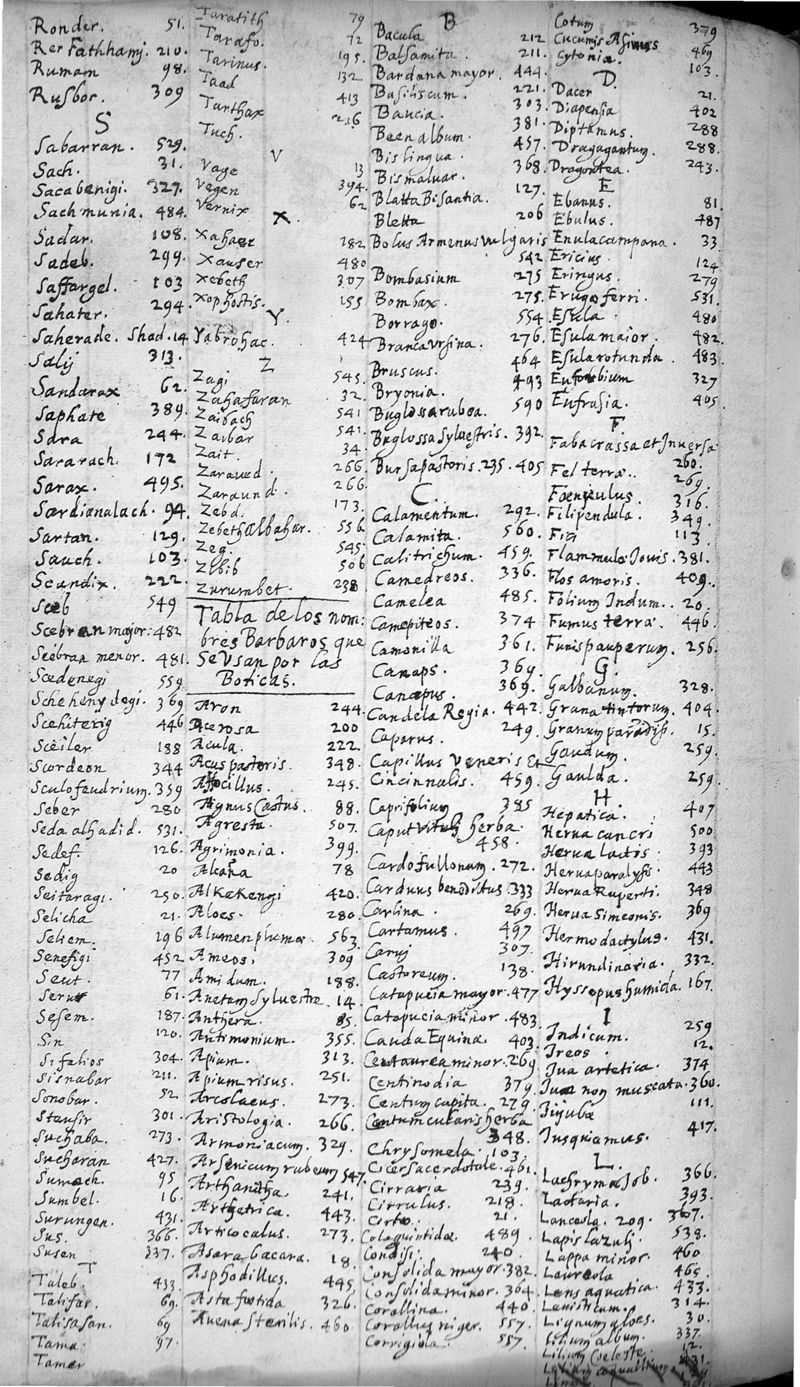 Ronder. 51.
Rer Fathhamj. 210.
Rumam 98.
Rusbor. 309
S
Sabarran. 529.
Sach. 31.
Sacabenigi. 327.
Sachmunia. 484.
Sadar. 108.
Sadeb. 299.
Saffargel. 103
Sahater. 294.
Saherade. Shad. 14
Salij 313.
Sandarax 62.
Saphate 389.
Sara 244.
Sararach. 172
Sarax. 495.
Sardianalach. 94.
Sartan. 129.
Sauch. 103.
Scandix. 222.
Sceb 549
Scebran major: 482
Scebran menor. 481.
Scedenegi 559
Scehenydegi. 369
Scehiterig 446
Sceiler 188
Scordeon 344
Sculofeudrium. 359
Seber 280
Seda alhadid. 531.
Sedef. 126.
Sedig 20
Seitaragi. 250.
Selicha 21.
Seliem. 196
Senefigi 452
Seut. 77
Serur 61.
Sesem. 187.
Sin 120.
Sifalios 304.
Sisnabar 211.
Sonobar. 52.
Stausir 301.
Suchaba. 273.
Sucharan 427.
Sumach. 95
Sumbel. 16.
Surungen. 431.
Sus. 366.
Susen 337.
T
Taleb. 433.
Talifar. 69.
Talisasan. 69
Tama. 97.
Tamer
Taratith 79
Tarafo. 72
Tarinus. 195.
Taad 132.
Tarthax 413
Tuch. 216
V
Vage 13
Vegen 394.
Vernix 62
X.
Xahaer 282
Xauser 480
Xebeth 307
Xophostis. 155
Y.
Yabrohac. 424
Z
Zagi 545.
Zahafaran 32.
Zaibach 541
Zaibar 541.
Zait. 34.
Zaraued. 266.
Zaraund. 266.
Zebd. 173.
Zebethalbahar. 556.
Zeg. 545.
Zibib 506
Zurumbet. 238
Tabla de los nom:
bres Barbaros que
se vsan por las
Boticas.
Aron 244.
Acerosa 200
Acula. 222.
Acus pastoris. 348.
Affocillus. 245.
Agnus Castus. 88.
Agresta. 507.
Agrimonia. 399.
Alcana 78
Alkekengi 420.
Aloes. 280.
Alumen plumæ. 563.
Ameos. 309
Amidum. 188.
Anetum sylvestre. 14.
Anthera. 85.
Antimonium. 355.
Apium. 313.
Apium risus. 251.
Arcolaeus. 273.
Aristologia. 266.
Armoniacum. 329.
Arsenicum rubeum 547.
Arthanitha. 241.
Arthetrica. 443.
Articocalus. 273.
Asara bacara. 18.
Asphodillus. 445
Asta fætida 326.
Auena sterilis. 460
B
Bacula 212.
Balsamita. 211.
Bardana mayor. 444.
Basiliscum. 221.
Baucia. 303.
Been album. 381.
Bislingua. 457.
Bismaluar. 368.
Blatta Bisantia. 127.
Bletta 206
Bolus Armenus vulgaris
542
Bombasium 275
Bombax. 275.
Borrago. 554
Branca vrsina. 276.
Bruscus. 464
Bryonia. 493
Buglossa rubea. 590
Buglossa sylvestris. 392.
Bursa pastoris. 235. 405
C.
Calamentum. 292.
Calamita. 560.
Calitrichum. 459.
Camedreos. 336.
Camelea 485.
Camepiteos. 374
Camonilla 361.
Canaps. 369.
Canapus. 369.
Candela Regia. 442.
Caparus. 249.
Capillus Veneris Et
Cincinnalis. 459.
Caprifolium 385
Caput vituli herba.
458.
Cardo fullonum. 272.
Carduus benedictus. 333
Carlina. 269.
Cartamus. 497
Caruj 307.
Castoreum. 138.
Catapucia mayor. 477
Catapucia minor. 483.
Cauda Equina. 403.
Centaurea minor. 269
Centinodia 379.
Centum capita. 279.
Centum cularis herba
348.
Chrysomela. 103.
Cicer sacerdotale. 461.
Cirraria 239.
Cirrulus. 218.
Corto. 21.
Coloquintidæ 489.
Condisi. 240.
Consolida mayor. 382.
Consolida minor. 364.
Corallina. 440.
Corallus niger. 557.
Corrigiola. 557.
Cotum 379
Cucumis Asinus 469
Cytonia. 103.
D.
Dacer 21.
Diapensia 402
Diptamus. 288
Dragagantum. 288.
Dragontea. 243.
E
Ebanus. 81.
Ebulus. 487
Enula campana. 33
Ericius. 124
Eringus. 279
Erugo ferri. 531.
Esula. 480
Esula maior. 482.
Esula rotunda. 483.
Euforbium 327
Eufrasia. 405.
F.
Faba crassa et Inversa
260.
Fel terræ. 269.
Fœniculus. 316.
Filipendula. 349.
Fizi 113
Flammula Jouis. 381.
Flos amoris. 409.
Folium Indum. 20.
Fumus terra. 446.
Funis pauperum. 256.
G.
Galbanum. 328.
Grana tintorum. 404.
Granum paradisi. 15.
Gaudum. 259.
Gaulda. 259.
H.
Hepatica. 407
Herua cancri 500
Herua lactis 393
Herua paralysis. 443
Herua Ruperti. 348
Herua Simeonis. 369
Hermodactylus. 431.
Hirundinaria. 332.
Hyssopus humida. 167.
I
Indicum. 259
Ireos. 12.
Iua artetica. 374
Iua non muscata. 360.
Iijubæ 111.
Iusquiamus. 417.
L.
Lachryma Job. 366.
Lactaria. 393.
Lanceola. 209. 367.
Lapis lazulj. 538.
Lappa minor. 460
Laureola 465.
Lens aquatica. 433.
Leuisticum. 314.
Lignum aloes. 30.
Lilium album. 337.
Lilium Cœleste. 12.
Lilium conuallium. 431.